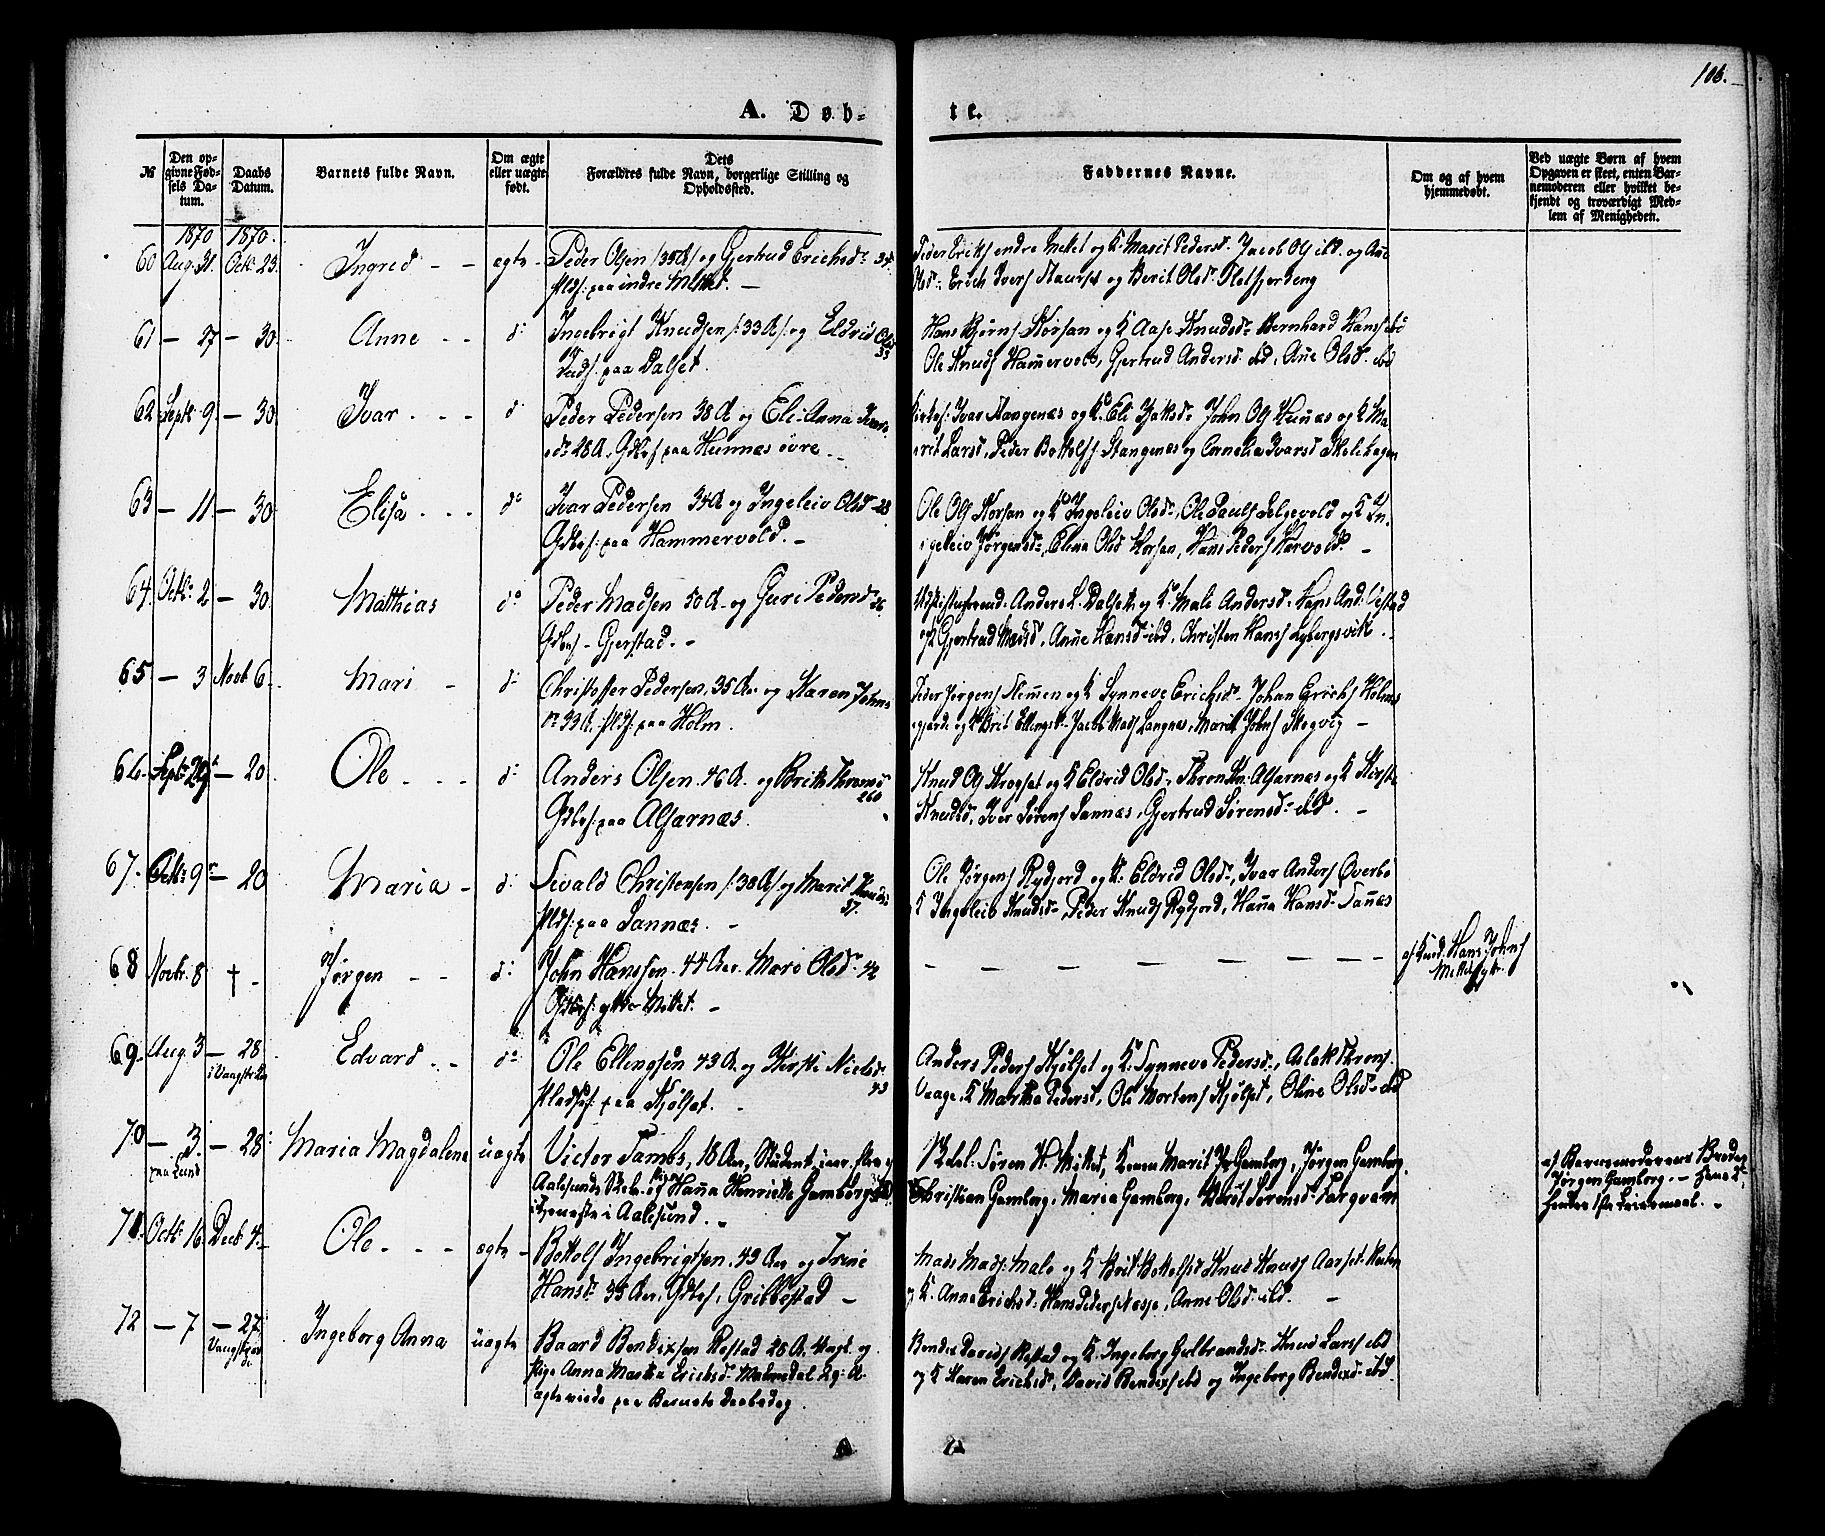 106.
A. Døb-
te.
№
Den op-
givne Fød-
sels Da-
tum.
Daabs
Datum.
Barnets fulde Navn.
Om ægte
eller uægte
født.
Dets
Forældres fulde Navn, borgerlige Stilling og
Opholdsted.
Faddernes Navne.
Om og af hvem
hjemmedøbt.
Ved uægte Børn af hvem
Opgaven er skeet, enten Bar-
nemoderen eller hvilket be-
kjendt og troværdigt Med-
lem af Menigheden.
1870 1870.
60 Aug. 31. Octb. 23. Ingred - - ægte - Peder Olsen /:35 A/ og Gjertrud Erichsd: 34.
Plds: paa indre Mittet. -
Peder Eriks. indre Mittet og K. Marit Pedersd: Jacob Ols ibd. og Ane
Olsd: Erich Ivers og Berit Olsd:
61 - 27 - 30. Anne - - do Ingebrigt Knudsen /:33 A/: og Eldrid Olsd
33
Inds: paa Dalset.
Hans Bjørns Korsan og K Aase Knudsd: Bernhard Hans ibd
Ole Knuds Hammervold, Gjertrud Andersd. ibd, Ane Olsd: ibd
62 Septb. 9. - 30. Ivar - - - do Peder Pedersen 38 A og Eli-Anna Ivars-
sdr 28 A, Gdbrs: paa Hennæs øvre. -
Ivar Stangenæs og K. Eli John Ols Hennæs og K Ma-
rit Larsd, Peder Bottolfs Stangenæs og Cornelia Ivarsd
63 - 11. - 30. Elisa - - - do Ivar Pedersen 34 A og Ingeleiv Olsd 28
Gdbrs: paa Hammervold. -
Ole Ols Korsan og K Ingeleiv Olsd:, Ole Pauls Helgevold og K In-
geleiv Jørgensd:, Elina Olsd Korsan, Hans Peders
64. Octb: 2 - 30. Matthias do Peder Madsen 50 A. og Guri Pedersd 36
Gdbrs - Gjerstad. -
Anders L. Dalset og K. Male Andersd. Hans And.
og K Gjertrud Madsd, Anne Hansd ibd, Christen Hans
65 - 3 Novb 6. Mari - do Christoffer Pedersen, 35 Aar og Karen Johns
dr 33 A: Plds: paa Holm.
Peder Jørgens og K Synneve Erichsd: Johan Erichs Holms
Jacob Mads Langnes, Marit Johns -
66. Septb: 29 - 20. Ole - - - do Anders Olsen. 46 A. og Brith Thronsd
260
Gdbrs: paa Alfarnæs.
Knud Ols Krogset og K Eldrid Olsd: Thron Kn: Alfarnæs og K Kirsti
Knudsd, Iver Sørens Sannæs, Gjertrud Sørensd: ibd. -
67. Octb: 9 - 20 Maria - do Sivald Christensen /:38 A/ og Marit Knudsd:
37.
Plds: paa Sannæs. -
Ole Jørgens Rydjord og K. Eldrid Olsd:, Ivar Anders Øverbø
K Ingeleiv Knudsd: Peder Knuds Rydjord, Hanna Hansd: Sannæs
68 Novbr. 8 † - Jørgen - - do John Hanssen. 44 Aar. Mari Olsd: 42
Gdbrs: ytre Mittet. -
- - - - - - - - -
af Hans Johns
Mittet ytre
69. Aug. 3 - 28. Edvard. - - do Ole Ellingsen 43 A. og Kirsti Nielsd:
43
Pladsf: paa Kjølset. -
Anders Peders Kjølset og K. Synneve Pedersd:, Aslak Throns.
Vaage, K Martha Pedersd:, Ole Mortens Kjølset, Oline Olsd: ibd
70 - 3. - 28: Maria Magdalene uægte Victor Tambs, 18 Aar, Student,
paa Lund
Aalesunds og Pige Hanna Henriette Gamborg
Tjeneste i Aalesund. -
Søren H. Mittet, Konen Marit Gamborg, Jørgen Gamborg.
Christian Gamborg, Maria Gamborg, Berit Sørensd: Torvven
af Barnemoderens Broder
Jørgen Gamborg. -
hendes 1ste Leiermaal. -
71. Octb: 16. Decb. 4. Ole. - - - ægte - Bottolf Ingebrigtsen. 43 Aar og Trine
Hansd: 35 Aar, Gdbrs, Gribbestad -
Mads Mads: Male og K Brit Bottolfsd Knud Knuds Aarset
og K. Anne Erichsd: Hans Peders Nesje, Anne Olsd: ibd. -
72 - 7 - 27. Ingeborg Anna uægte Baard Bendixsen Restad 28 A. Ungk. og
Pige Anna Martha Erichsd: Malmedal 29: A.
ægteviede paa Barnets Daabsdag.
Bendix Davids Restad og K. Ingeborg Gulbrandsd: Knud Lars: ibd
og K Karen Erichsd:, David Bendixs ibd og Ingeborg Bendixsd: ibd.